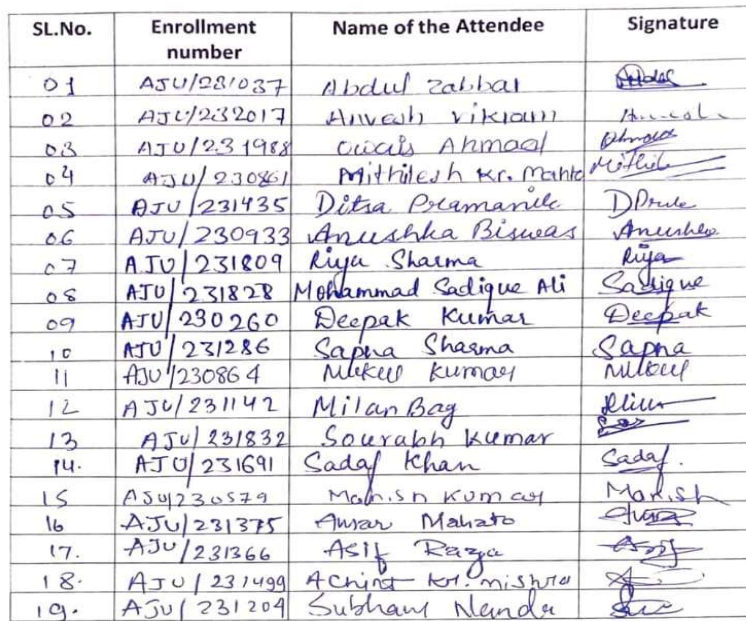 SL.No. Enrollment number Name of the Attendee Signature
01 AJU/231037 Abdul Zabbar
02 AJU/232017 Anvesh vikram
03 AJU/231988 Owais Ahmad Ahmad
04 AJU/230861 Mithilesh Kr. Mahto Mithil
05 AJU/231435 Ditsa Pramanik
06 AJU/230933 Anushka Biswas Anushka
07 AJU/231809 Riya Sharma Riya
08 AJU/231828 Mohammad Sadique Ali Sadique
09 AJU/230260 Deepak Kumar Deepak
10 AJU/231286 Sapna Sharma Sapna
11 AJU/230864 Mukul Kumar Mukul
12 AJU/231142 Milan Bag
13 AJU/231832 Sourabh Kumar
14. AJU/231691 Sadaf Khan Sadaf.
15 AJU/230579 Manish Kumar Manish
16 AJU/231375 Amar Mahato
17. AJU/231366 Asif Raza Asif
18. AJU/231499 Achint Kr. mishra
19. AJU/231204 Subham Nandi